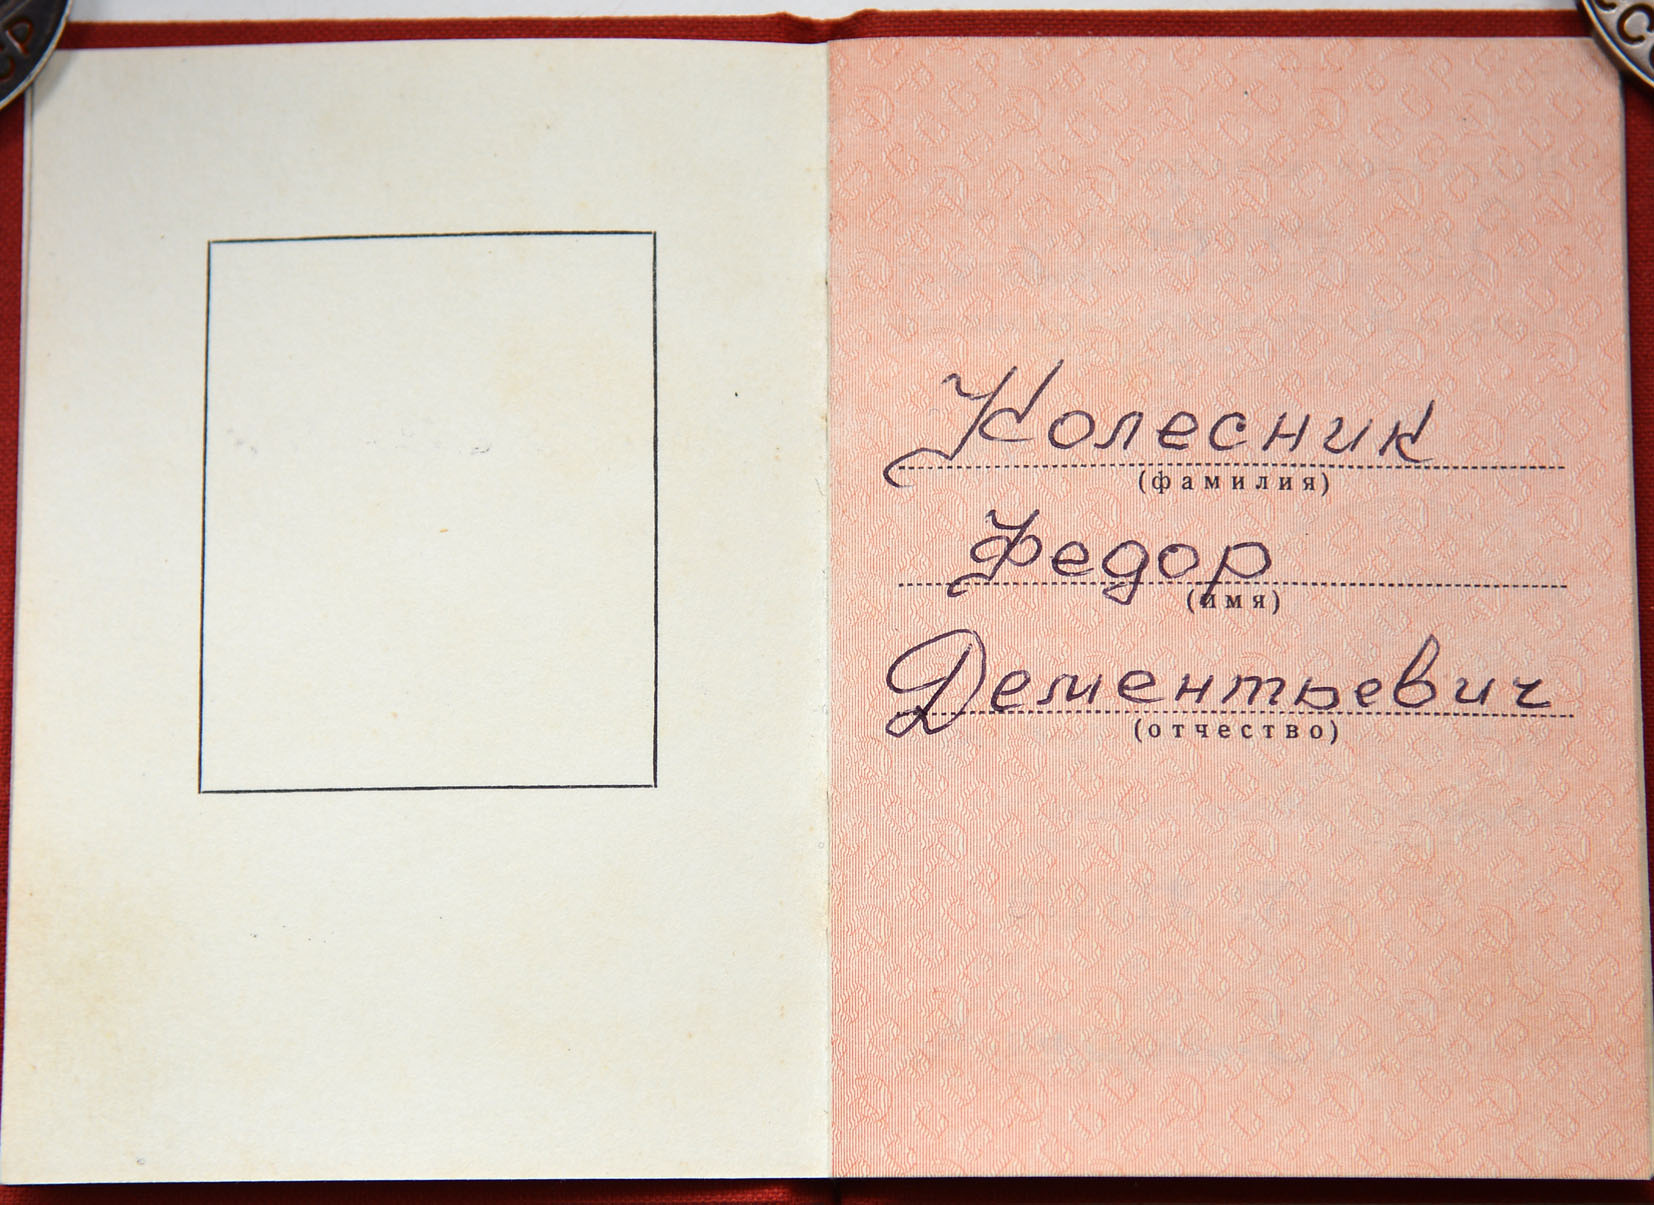 Колесник
(фамилия)
Федор
(имя)
Дементьевич
(отчество)